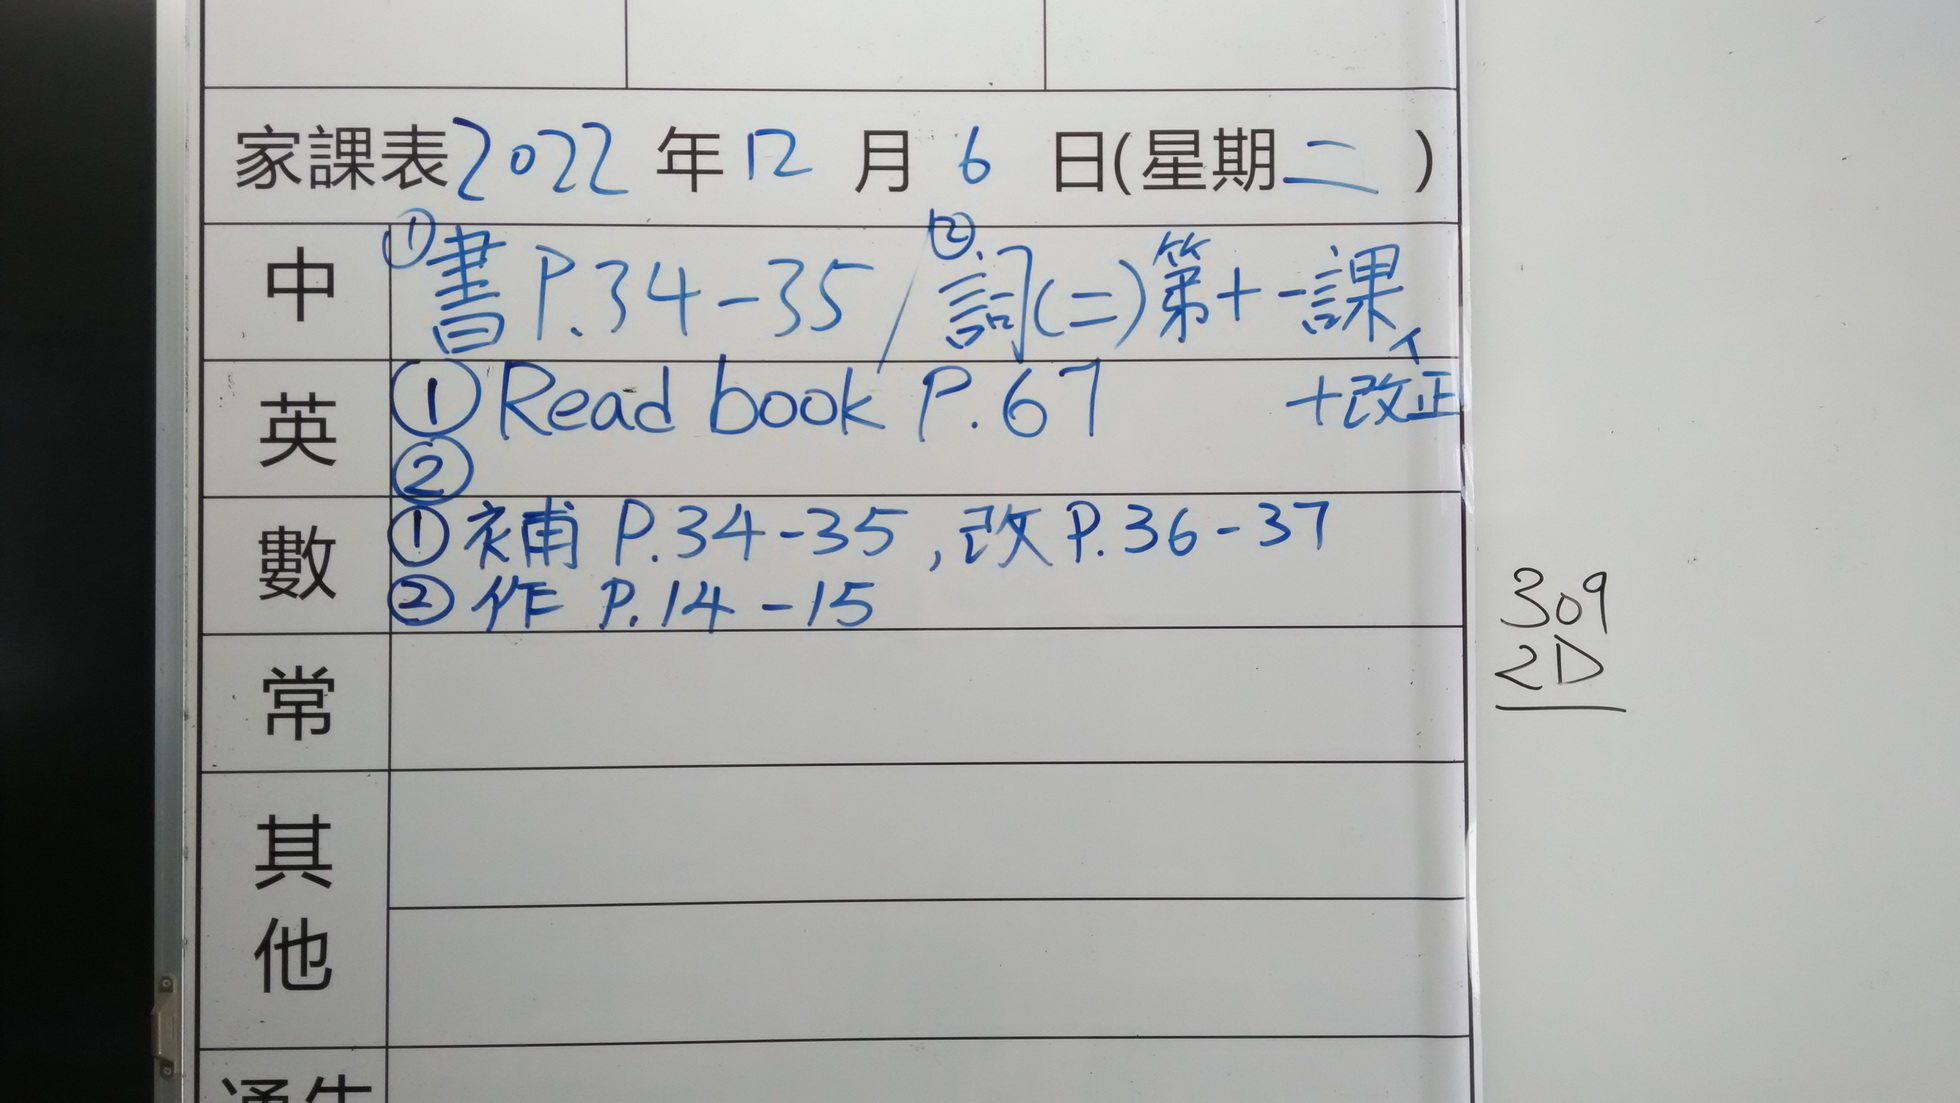 家課表 2022 年 12 月 6 日(星期二)
中 ①書 P.34-35 / ②詞(二)第十一課
+改正
英 ①Read book P.67
②
數 ①補 P.34-35, 改 P.36-37
②作 P.14-15
309
2D
常
其
他
通告